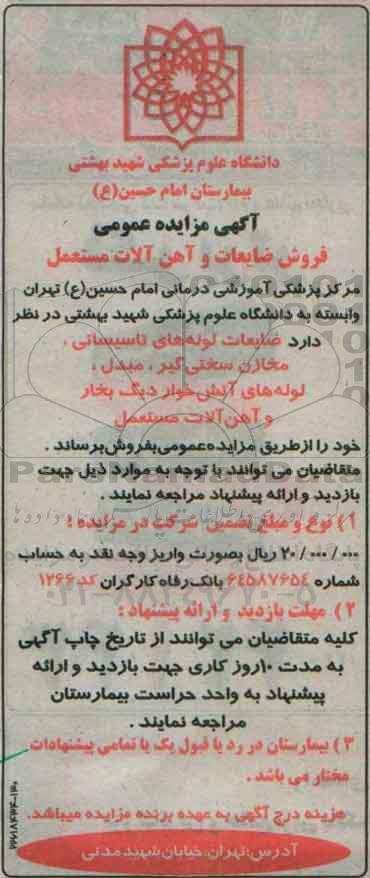 دانشگاه علوم پزشکی شهید بهشتی
بیمارستان امام حسین(ع)
آگهی مزایده عمومی
فروش ضایعات و آهن آلات مستعمل
مرکز پزشکی آموزشی درمانی امام حسین(ع) تهران
وابسته به دانشگاه علوم پزشکی شهید بهشتی در نظر
دارد ضایعات لوله‌های تاسیساتی ،
مخازن سختی گیر ، مبدل ،
لوله‌های آتش‌خوار دیگ بخار
و آهن‌آلات مستعمل
خود را ازطریق مزایده‌عمومی‌بفروش‌برساند .
متقاضیان می توانند با توجه به موارد ذیل جهت
بازدید و ارائه پیشنهاد مراجعه نمایند .
۱ ) نوع و مبلغ تضمین شرکت در مزایده :
۲۰/۰۰۰/۰۰۰ ریال بصورت واریز وجه نقد به حساب
شماره ۶۴۵۸۷۶۵۴ بانک رفاه کارگران کد ۱۲۶۶
۲ ) مهلت بازدید و ارائه پیشنهاد :
کلیه متقاضیان می توانند از تاریخ چاپ آگهی
به مدت ۱۰روز کاری جهت بازدید و ارائه
پیشنهاد به واحد حراست بیمارستان
مراجعه نمایند .
۳ ) بیمارستان در رد یا قبول یک یا تمامی پیشنهادات
مختار می باشد .
هزینه درج آگهی به عهده برنده مزایده میباشد.
آدرس:تهران،خیابان شهید مدنی